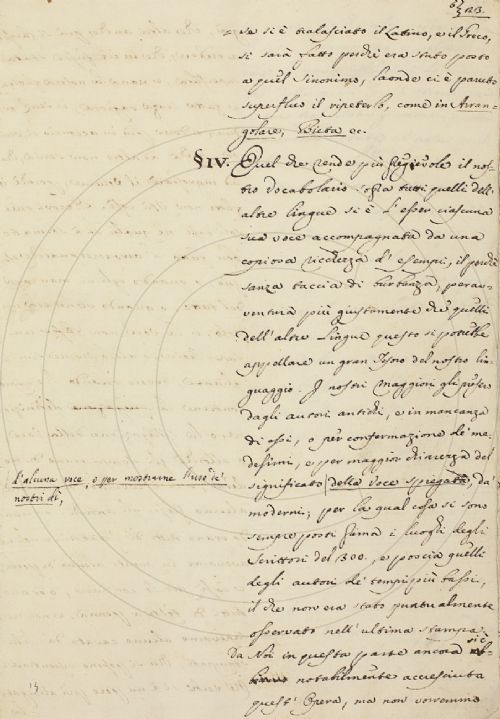 se si è tralasciato il Latino, e il Greco,
si sarà fatto perchè era stato posto
a quel Sinonimo, laonde ci è paruto
superfluo il ripeterlo, come in Arran-
golare, Bieta ec.
§ IV. Quel che rende più pregevole il nos-
tro Vocabolario sopra tutti quelli dell'
altre lingue si è l'esser ciascuna
sua voce accompagnata da una
copiosa ricchezza d'esempi, il perchè
sanza taccia di burbanza, perav-
ventura più giustamente che quelli
dell'altre lingue questo si potrebbe
appellare un gran Tesoro del nostro lin-
guaggio. I nostri Maggiori gli preser
dagli autori antichi, e in mancanza
di essi, o per confermazione de' me-
desimi, e per maggior chiarezza del
significato della voce spiegata, da'
d'alcuna voce, o per mostrarne l'uso de'
nostri dì,
moderni; per la qual cosa si sono
sempre posti prima i luoghi degli
Scrittori del 300, e poscia quelli
degli autori de' tempi più bassi,
il che non era stato puntualmente
osservato nell'ultima stampa.
Da Noi in questa parte ancora si è
notabilmente accresciuta
quest'Opera, ma non vorremmo